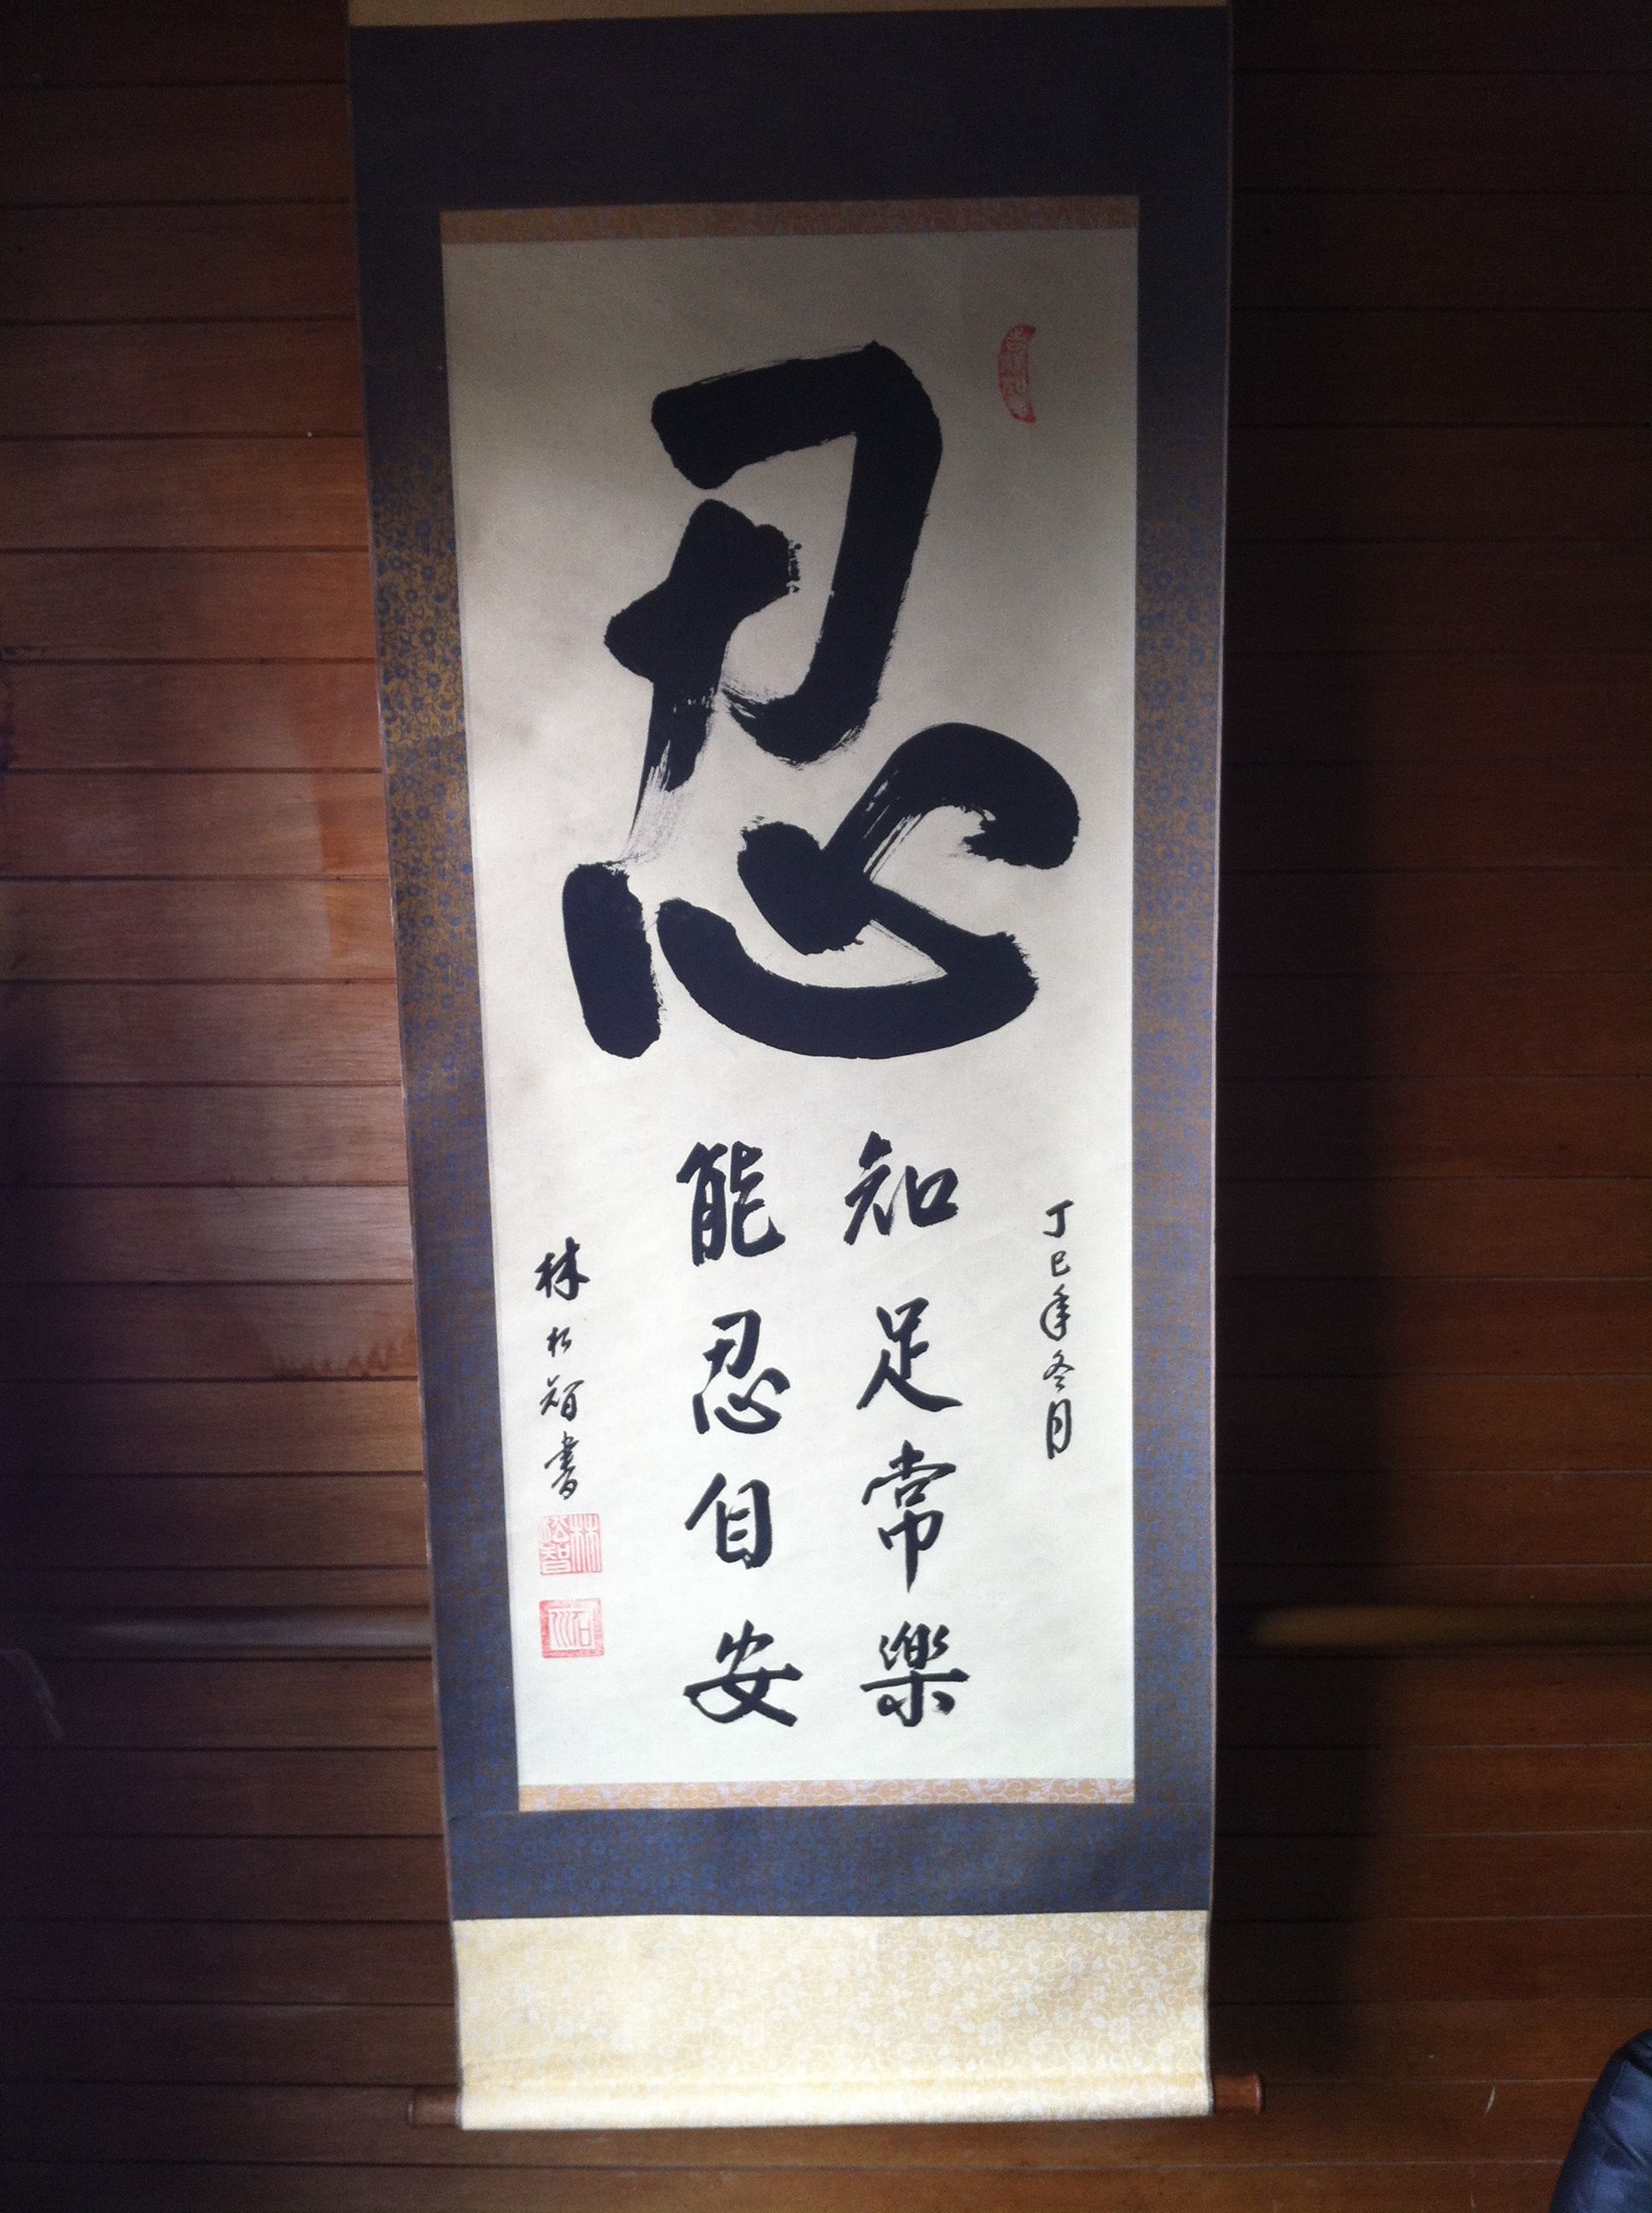 忍
丁巳年冬月
知足常樂
能忍自安
林松智書
林松智